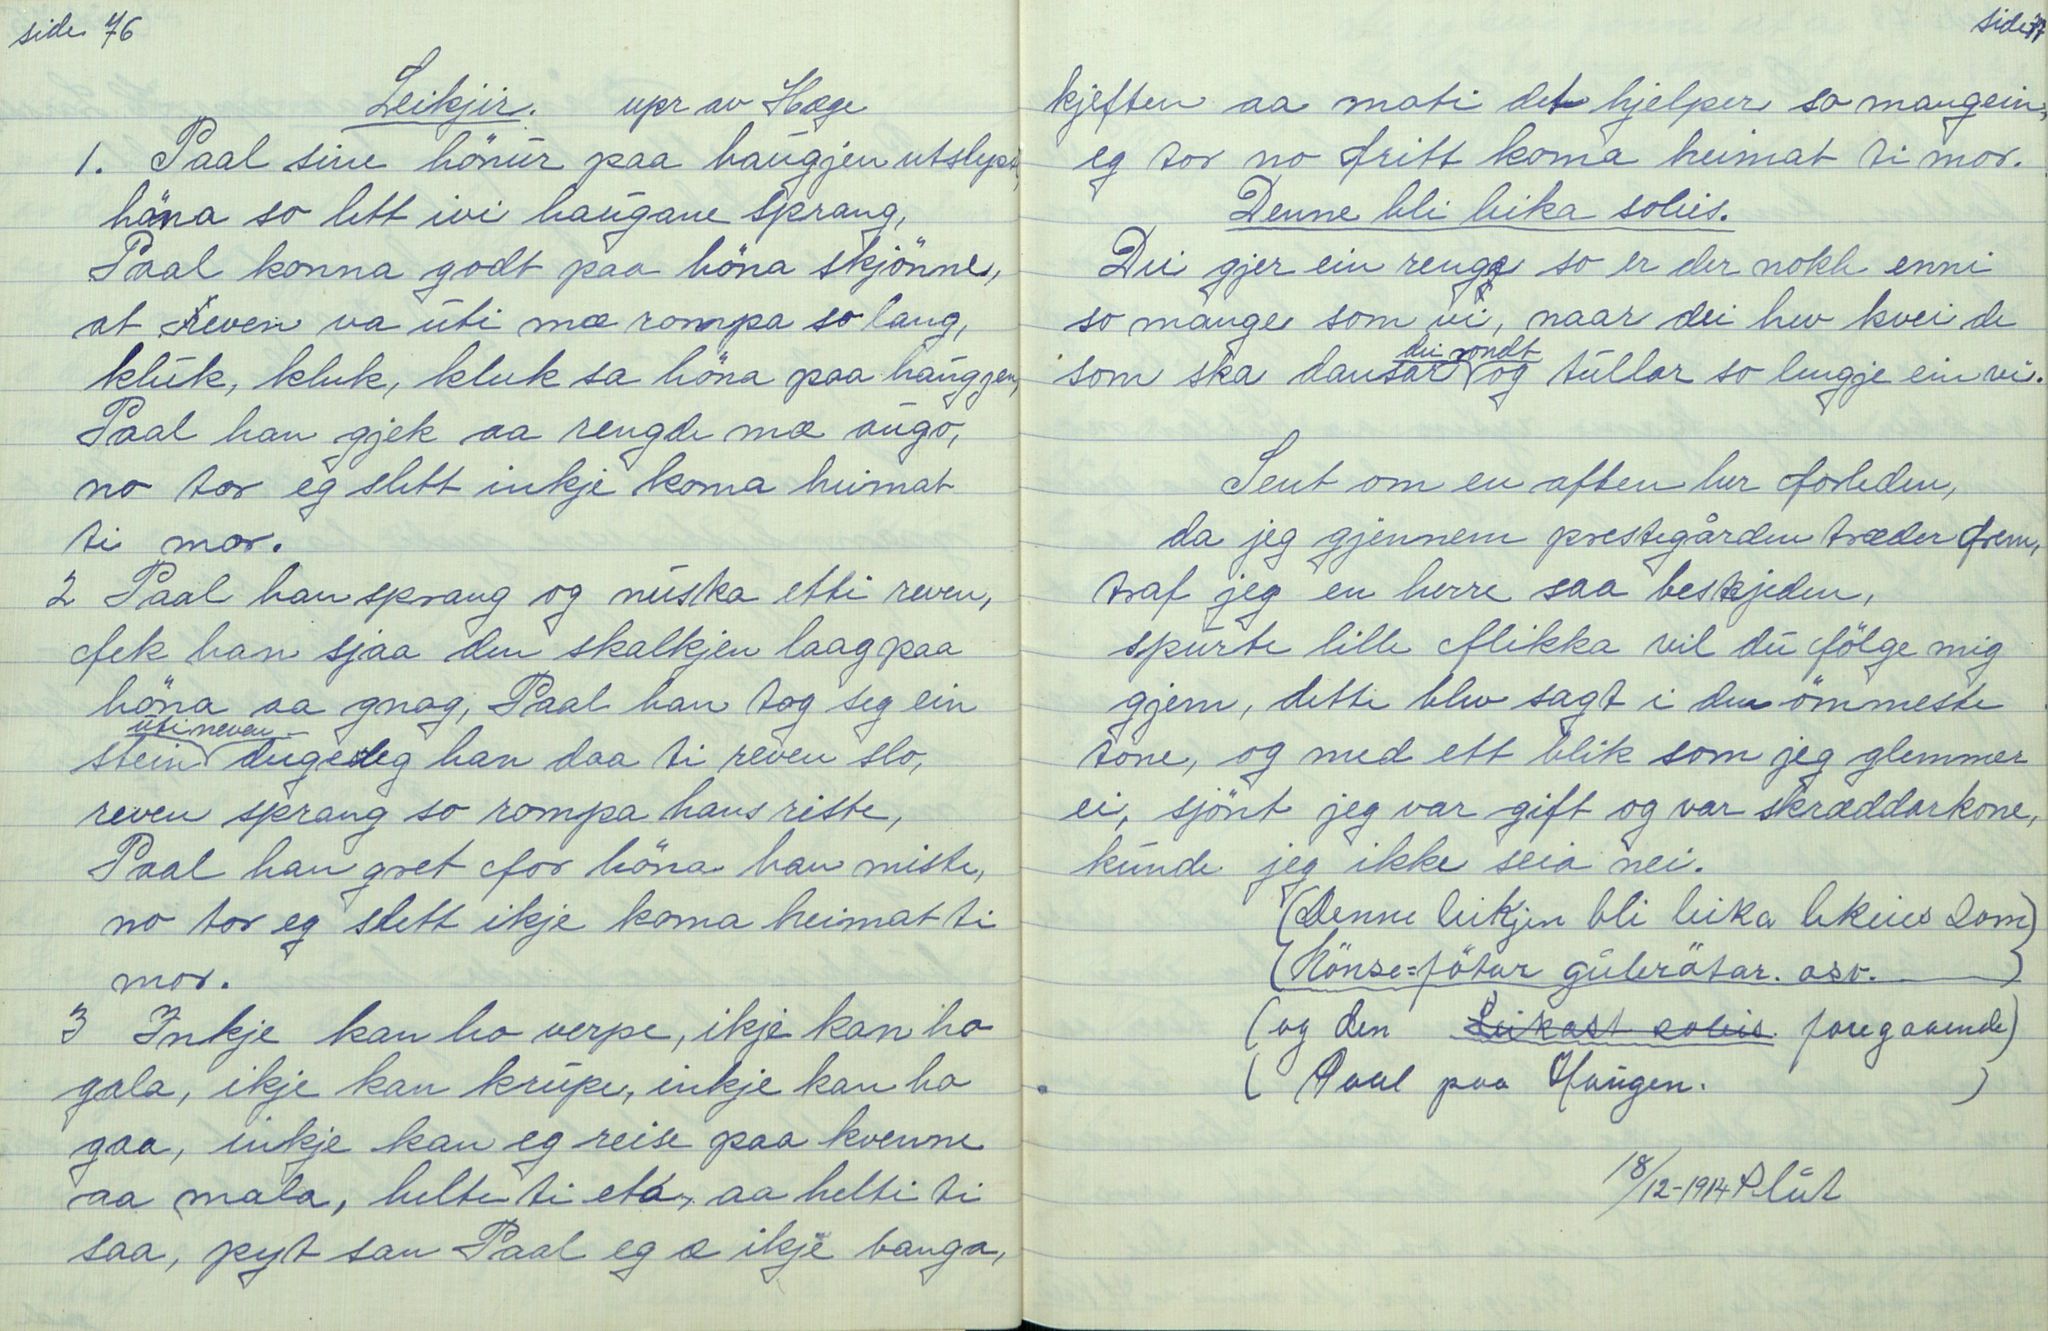 side 76
Leikjir. upr av Hæge
1. Paal sine hönur paa haugjen utslept,
höna so lett ivi haugane sprang,
Paal konna godt paa höna skjönne,
at reven va úti mæ rompa so lang,
klúk, kluk, kluk sa höna paa haugjen,
Paal han gjek aa rengde mæ augo,
no tor eg slett inkje koma heimat
ti mor.
2 Paal han sprang og nuska etti reven,
fek han sjaa den skalkjen laag paa
höna aa gnag, Paal han tog seg ein
úti neven
stein dugeleg han daa ti reven slo,
reven sprang so rompa hans riste,
Paal han gret for höna han miste,
no tor eg slett ikje koma heimat ti
mor.
3 Inkje kan ho verpe, ikje kan ho
gala, ikje kan krúpe, inkje kan ho
gaa, inkje kan eg reise paa kvenne
aa mala, helte ti eta, aa helti ti
saa, pyt san Paal eg æ ikje banga,
side 77
kjeften aa moti det hjelper so mangein,
eg tor no fritt koma heimat ti mor.
Denne bli leika soleis.
Dei gjer ein renge so er der nokk enni
so mange som vi, naar dei hev kvei de
dei rondt
som ska dansar og túllar so lengje ein vi.
Sent om en aften her forleden,
da jeg gjennem prestegården træder frem,
traf jeg en herre saa beskjeden,
spurte lille flikka vil dú fölge mig
gjem, dette blev sagt i den ömmeste
tone, og med ett blik som jeg glemmer
ei, sjönt jeg var gift og var skræddarkone,
kúnde jeg ikke seia nei.
(Denne leikjen bli leika lekeies som)
(Hönse=fötur gúlerötar. osv.)
(og den Leikast soleis foregaaende)
(Paal paa Haugen.)
18/12-1914 Slút